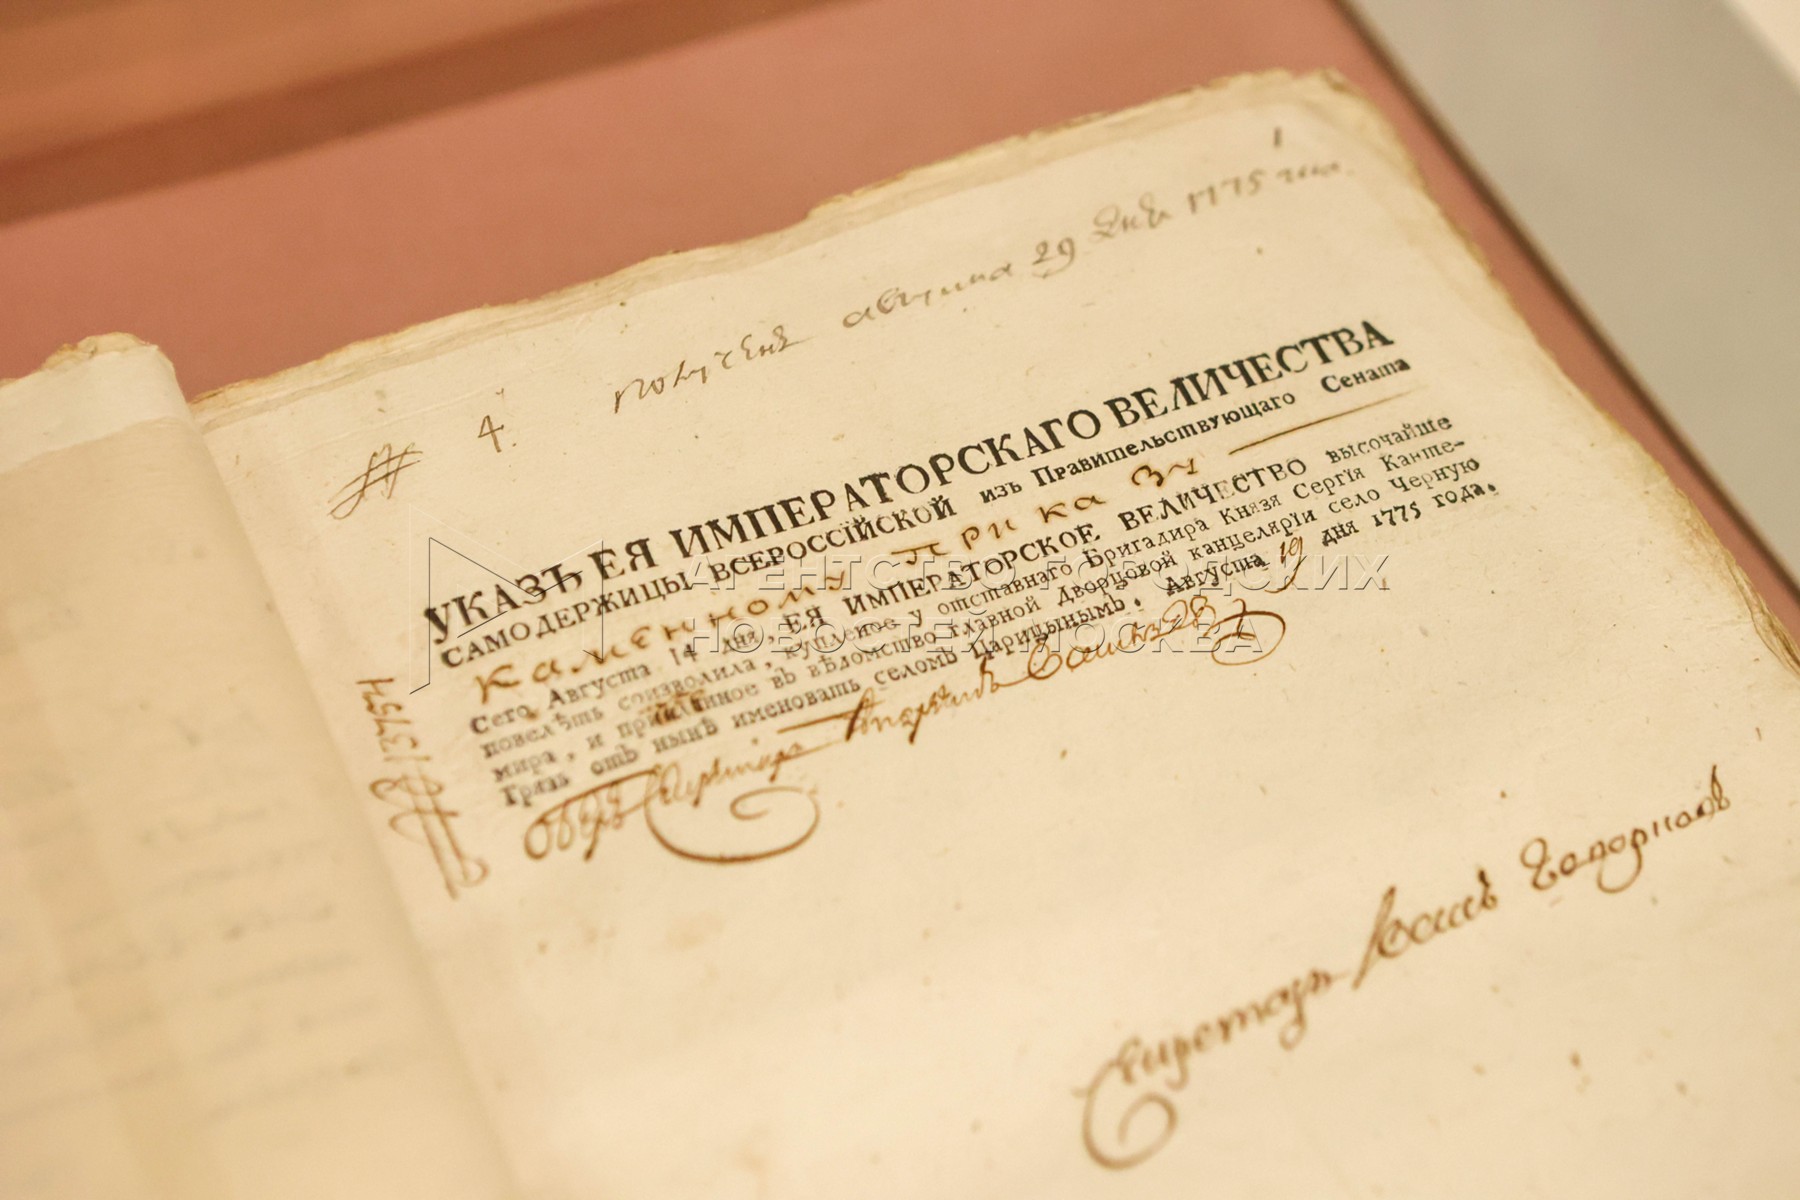 1
полученъ августа 29 дня 1775 года.
4.
УКАЗЪ ЕЯ ИМПЕРАТОРСКАГО ВЕЛИЧЕСТВА
САМОДЕРЖИЦЫ ВСЕРОССІЙСКОЙ изъ Правительствующаго Сената
каменному приказу
Сего Августа 14 дня, ЕЯ ИМПЕРАТОРСКОЕ ВЕЛИЧЕСТВО высочайше
повелѣть соизволила, купленое у отставнаго Бригадира Князя Сергія Канте-
мира, и приписанное въ вѣдомство главной дворцовой канцеляріи село Черную
Грязь отъ нынѣ именовать селомъ Царицынымъ. Августа 19 дня 1775 года.
Оберъ Секретарь
Секретарь
АГЕНТСТВО ГОРОДСКИХ
НОВОСТЕЙ МОСКВА